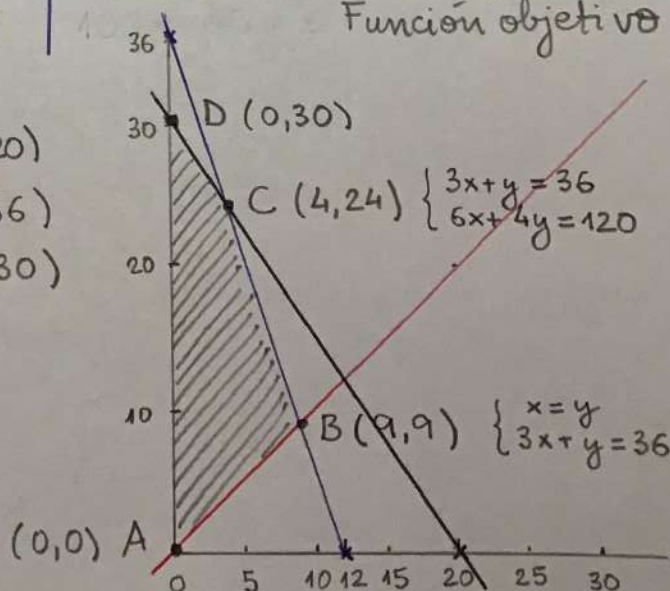 Función objetivo
36
20)
30
D (0,30)
6)
C (4,24) { 3x+y=36
6x+4y=120
30)
20
10
B (9,9) { x=y
3x+y=36
(0,0) A
0 5 10 12 15 20 25 30